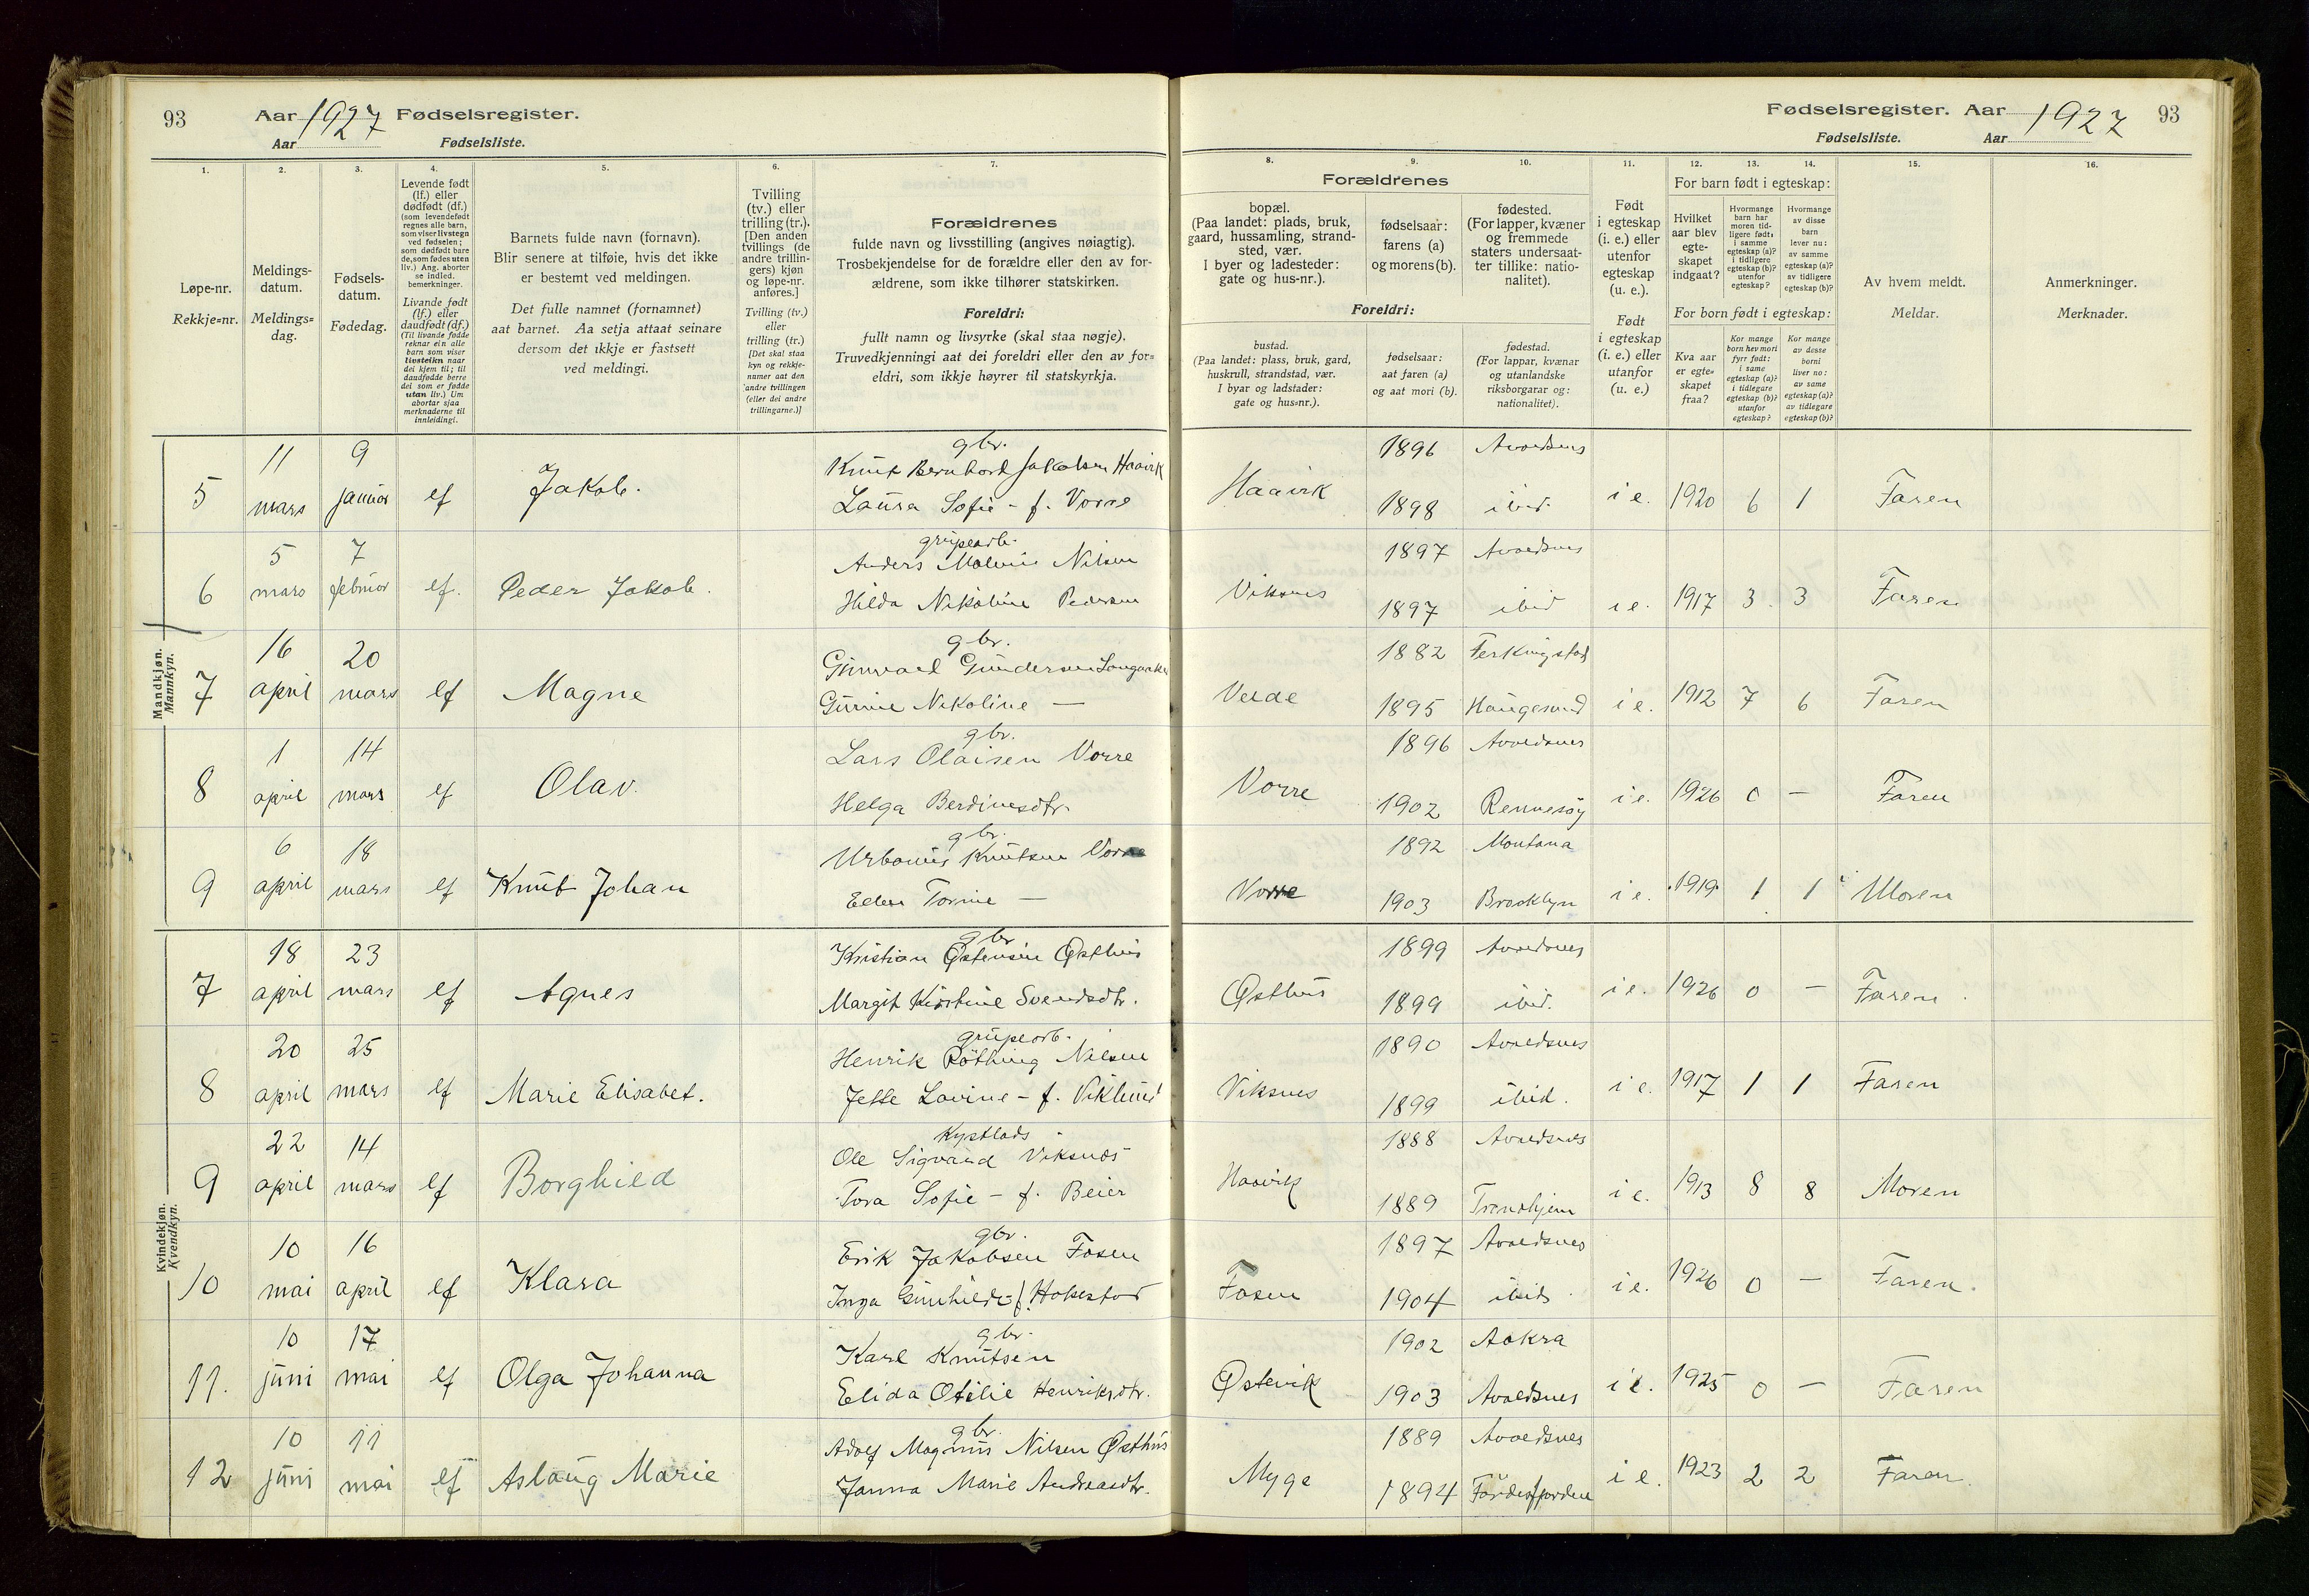 93 Aar 1927 Fødselsregister.
Aar Fødselsliste.
Fødselsregister. Aar 1927 93
Fødselsliste. Aar
1. 2. 3. 4. 5. 6. 7.
Løpe-nr.
Rekkje=nr.
Meldings-
datum.
Meldings=
dag.
Fødsels-
datum.
Fødedag.
Levende født
(lf.) eller
dødfødt (df.)
(som levendefødt
regnes alle barn,
som viser livstegn
ved fødselen;
som dødfødt bare
de, som fødes uten
liv.) Ang. aborter
se indled.
bemerkninger.
Livande født
(lf.) eller
daudfødt (df.)
(Til livande fødde
reknar ein alle
barn som viser
livsteikn naar
dei kjem til; til
daudfødde berre
dei som er fødde
utan liv.) Um
abortar sjaa
merknaderne til
innleidingi.
Barnets fulde navn (fornavn).
Blir senere at tilføie, hvis det ikke
er bestemt ved meldingen.
Det fulle namnet (fornamnet)
aat barnet. Aa setja attaat seinare
dersom det ikkje er fastsett
ved meldingi.
Tvilling
(tv.) eller
trilling (tr.).
[Den anden
tvillings (de
andre trillin-
gers) kjøn
og løpe-nr.
anføres.]
Tvilling (tv.)
eller
trilling (tr.)
[Det skal staa
kyn og rekkje-
numer aat den
andre tvillingen
(eller dei andre
trillingarne.)]
Forældrenes
fulde navn og livsstilling (angives nøiagtig).
Trosbekjendelse for de forældre eller den av for-
ældrene, som ikke tilhører statskirken.
Foreldri:
fullt namn og livsyrke (skal staa nøgje).
Truvedkjenningi aat dei foreldri eller den av for=
eldri, som ikkje høyrer til statskyrkja.
8. 9. 10. 11. 12. 13. 14. 15. 16.
Forældrenes
bopæl.
(Paa landet: plads, bruk,
gaard, hussamling, strand-
sted, vær.
I byer og ladesteder:
gate og hus-nr.).
fødselsaar:
farens (a)
og morens (b).
fødested.
(For lapper, kvæner
og fremmede
staters undersaat-
ter tillike: natio-
nalitet).
Foreldri:
bustad.
(Paa landet: plass, bruk, gard,
huskrull, strandstad, vær.
I byar og ladstader:
gate og hus=nr.).
fødselsaar:
aat faren (a)
og aat mori (b).
fødestad.
(For lappar, kvænar
og utanlandske
riksborgarar og:
nationalitet).
Født
i egteskap
(i. e.) eller
utenfor
egteskap
(u. e.).
Født
i egteskap
(i. e.) eller
utanfor
(u. e.)
For barn født i egteskap:
Hvilket
aar blev
egte-
skapet
indgaat?
Hvormange
barn har
moren tid-
ligere født:
i samme
egteskap (a)?
i tidligere
egteskap (b)?
utenfor
egteskap?
Hvormange
av disse
barn
lever nu:
av samme
egteskap (a)?
av tidligere
egteskap (b)?
For born født i egteskap:
Kva aar
er egte=
skapet
fraa?
Kor mange
born hev mori
fyrr født:
i same
egteskap (a)?
i tidlegare
egteskap (b)?
utanfor
egteskap?
Kor mange
av desse
borni
liver no:
av same
egteskap (a)?
av tidlegare
egteskap (b)?
Av hvem meldt.
Meldar.
Anmerkninger.
Merknader.
Mandkjøn.
Mannkyn.
gbr.
11 9 Knut Bernhard Jakobsen Haavik 1896 Avaldsnes
5 mars januar lf Jakob. Laura Sofie - f. Vorre Haavik 1898 ibid. i e. 1920 6 1 Faren
5 7 Anders Nilsen 1897 Avaldsnes
6 mars februar lf. Peder Jakob. Hilda Nikoline Pedersen Viksnes 1897 ibid i e. 1917 3. 3 Faren
gbr.
16 20 Gunvald Gundersen Langaaker 1882 Ferkingstad
7 april mars lf Magne Gurine Nikoline — Velde 1895 Haugesund i e. 1912 7 6 Faren
gbr.
1 14 Lars Olaisen Vorre 1896 Avaldsnes
8 april mars lf Olav. Helga Berdinesdtr. Vorre 1902 Rennesøy i e. 1926 0 — Faren
gbr.
6 18 Urbanus Knutsen Vorre 1892 Montana
9 april mars lf Knut Johan Ellen Torine — Vorre 1903 Brooklyn i e. 1919. 1 1 Moren
Kvindekjøn.
Kvendkyn.
gbr
18 23 Kristian Østensen Østhus 1899 Avaldsnes
7 april mars lf Agnes Margit Kirstine Svendsdtr. Østhus 1899 ibid. i e. 1926 0 — Faren.
grubearb.
20 25 Henrik Røthing Nilsen 1890 Avaldsnes
8 april mars lf Marie Elisabet. Jette Lovine - f. Viksnes 1899 ibid. i e. 1917 1 1 Faren
Kystlods
22 14 Ole Sigvard Viksnes 1888 Avaldsnes
9 april mars lf Borghild Tora Sofie - f. Beier Haavik 1889 Trondhjem i e. 1913 8 8 Moren
gbr.
10 16 Erik Jakobsen Fosen 1897 Avaldsnes
10 mai april lf Klara Inga Gunhilde f. Fosen 1904 ibid. i e. 1926 0 — Faren.
gbr.
10 17 Karl Knutsen 1902 Aakra
11. juni mai lf Olga Johanna Elida Otilie Henriksdtr. Østevik 1903 Avaldsnes i e. 1925 0 — Faren
gbr.
10 11 Adolf Magnus Nilsen Østhus 1889 Avaldsnes
12 juni mai lf Aslaug Marie Janna Marie Andreasdtr. Myge 1894 Førdesfjorden i e. 1923 2 2 Faren.